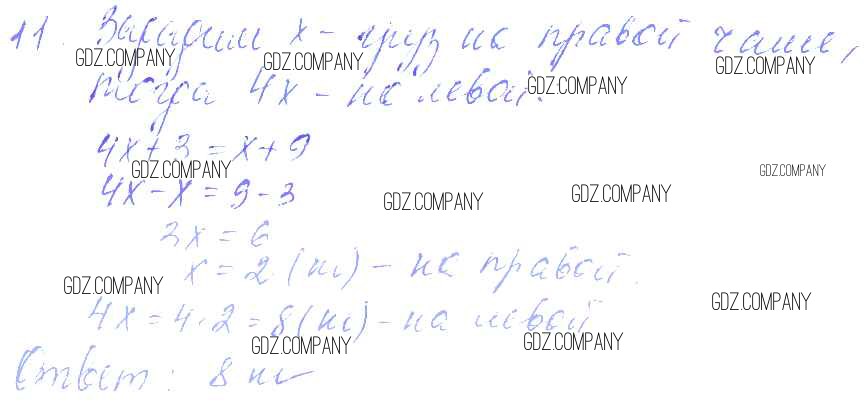 11. Зададим x – груз на правой чаше,
тогда 4x – на левой.
4x + 3 = x + 9
4x – x = 9 – 3
3x = 6
x = 2 (кг) – на правой.
4x = 4 · 2 = 8 (кг) – на левой
Ответ: 8 кг
GDZ.COMPANY
GDZ.COMPANY
GDZ.COMPANY
GDZ.COMPANY
GDZ.COMPANY
GDZ.COMPANY
GDZ.COMPANY
GDZ.COMPANY
GDZ.COMPANY
GDZ.COMPANY
GDZ.COMPANY
GDZ.COMPANY